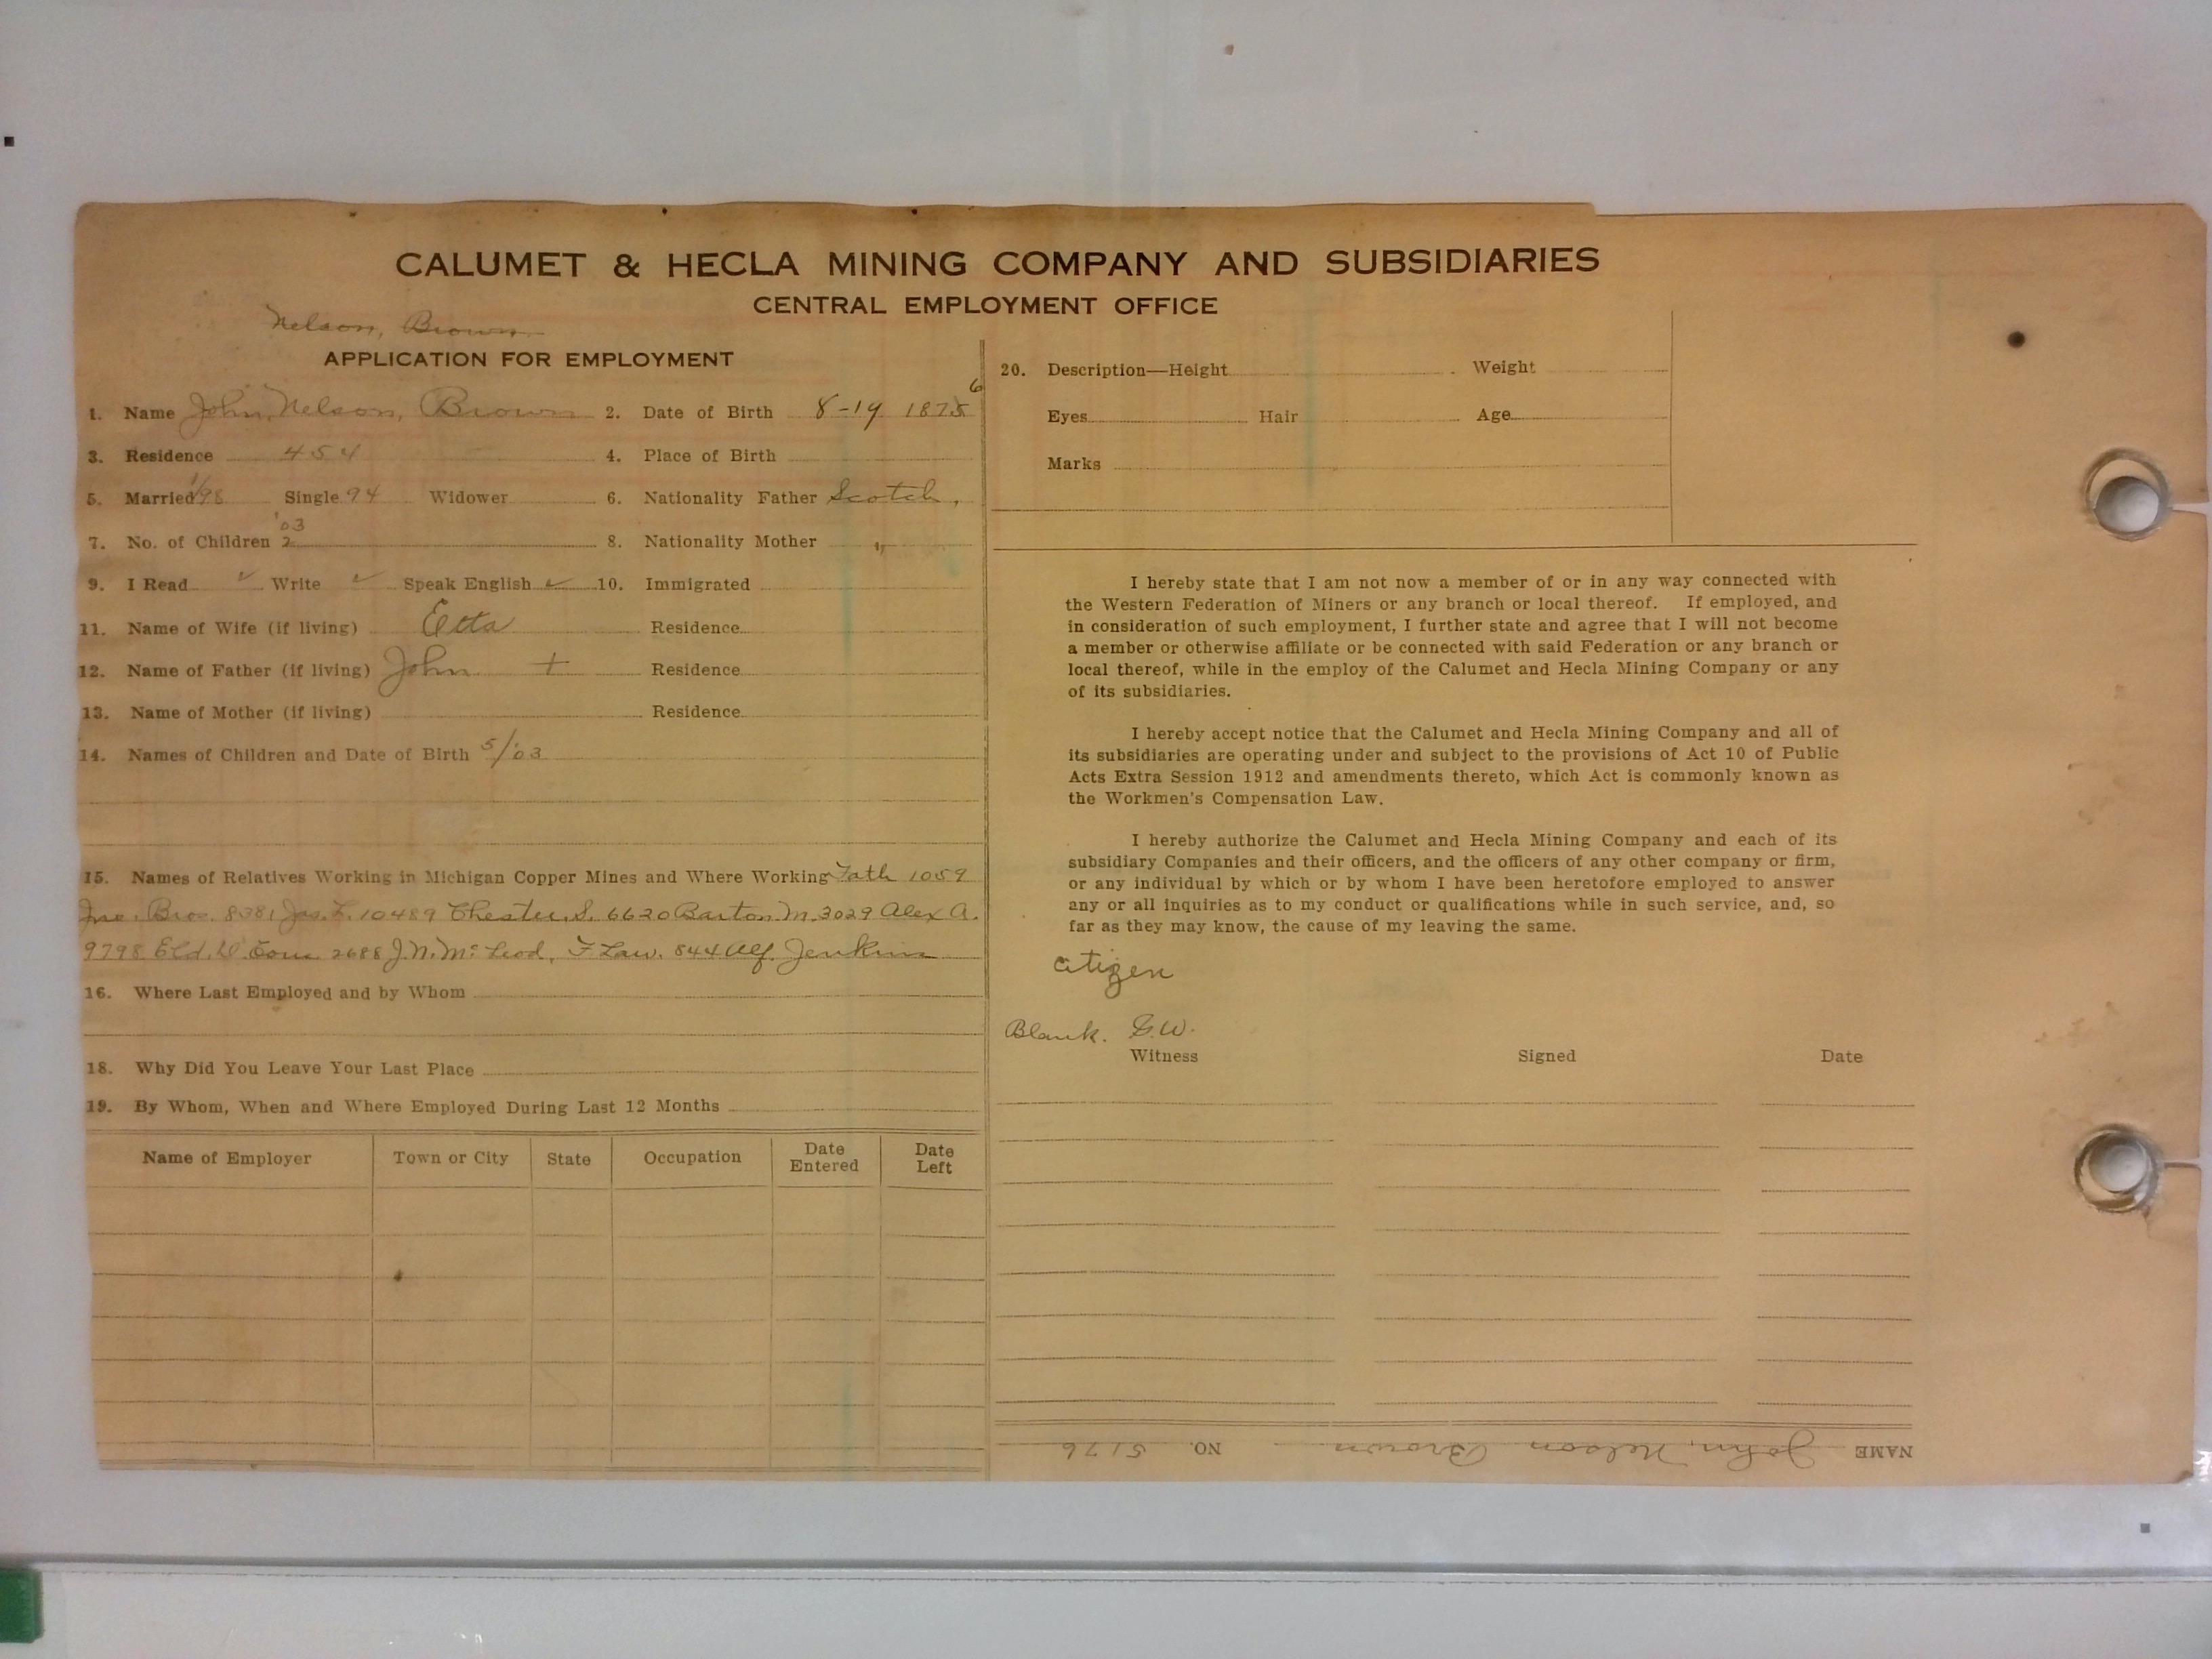 CALUMET & HECLA MINING COMPANY AND SUBSIDIARIES
CENTRAL EMPLOYMENT OFFICE
Nelson, Brown
APPLICATION FOR EMPLOYMENT
1. Name John, Nelson, Brown 2. Date of Birth 8-19 1875 6
3. Residence 454 4. Place of Birth
5. Married 1/98 Single 94 Widower 6. Nationality Father Scotch,
'03
7. No. of Children 2 8. Nationality Mother "
9. I Read ✓ Write ✓ Speak English ✓ 10. Immigrated
11. Name of Wife (if living) Etta Residence
12. Name of Father (if living) John + Residence
13. Name of Mother (if living) Residence
14. Names of Children and Date of Birth 5/'03
15. Names of Relatives Working in Michigan Copper Mines and Where Working Fath 1059
Jno. Bros. 8381 Jas. L. 10489 Chester. S. 6620 Barton M. 3029 Alex A.
9798 Eld. W. 2688 J. N. McLeod, F Law. 844 Alf. Jenkins
16. Where Last Employed and by Whom
18. Why Did You Leave Your Last Place
19. By Whom, When and Where Employed During Last 12 Months
Name of Employer Town or City State Occupation Date Entered Date Left
20. Description—Height Weight
Eyes Hair Age
Marks
I hereby state that I am not now a member of or in any way connected with
the Western Federation of Miners or any branch or local thereof. If employed, and
in consideration of such employment, I further state and agree that I will not become
a member or otherwise affiliate or be connected with said Federation or any branch or
local thereof, while in the employ of the Calumet and Hecla Mining Company or any
of its subsidiaries.
I hereby accept notice that the Calumet and Hecla Mining Company and all of
its subsidiaries are operating under and subject to the provisions of Act 10 of Public
Acts Extra Session 1912 and amendments thereto, which Act is commonly known as
the Workmen's Compensation Law.
I hereby authorize the Calumet and Hecla Mining Company and each of its
subsidiary Companies and their officers, and the officers of any other company or firm,
or any individual by which or by whom I have been heretofore employed to answer
any or all inquiries as to my conduct or qualifications while in such service, and, so
far as they may know, the cause of my leaving the same.
citizen
Blank. G.W.
Witness Signed Date
NAME John, Nelson Brown NO. 5176